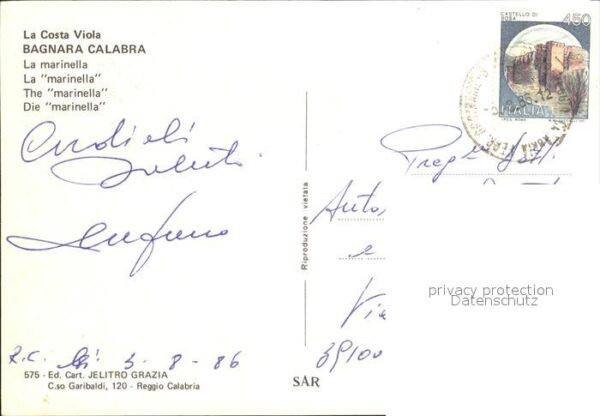 La Costa Viola
BAGNARA CALABRA
La marinella
La "marinella"
The "marinella"
Die "marinella"
CASTELLO DI
ROSA
450
ITALIA
Cordiali
Saluti
Riproduzione vietata
Auto
e
Via
39100
privacy protection
Datenschutz
R.C. li 3-8-86
575 - Ed. Cart. JELITRO GRAZIA
C.so Garibaldi, 120 - Reggio Calabria
SAR